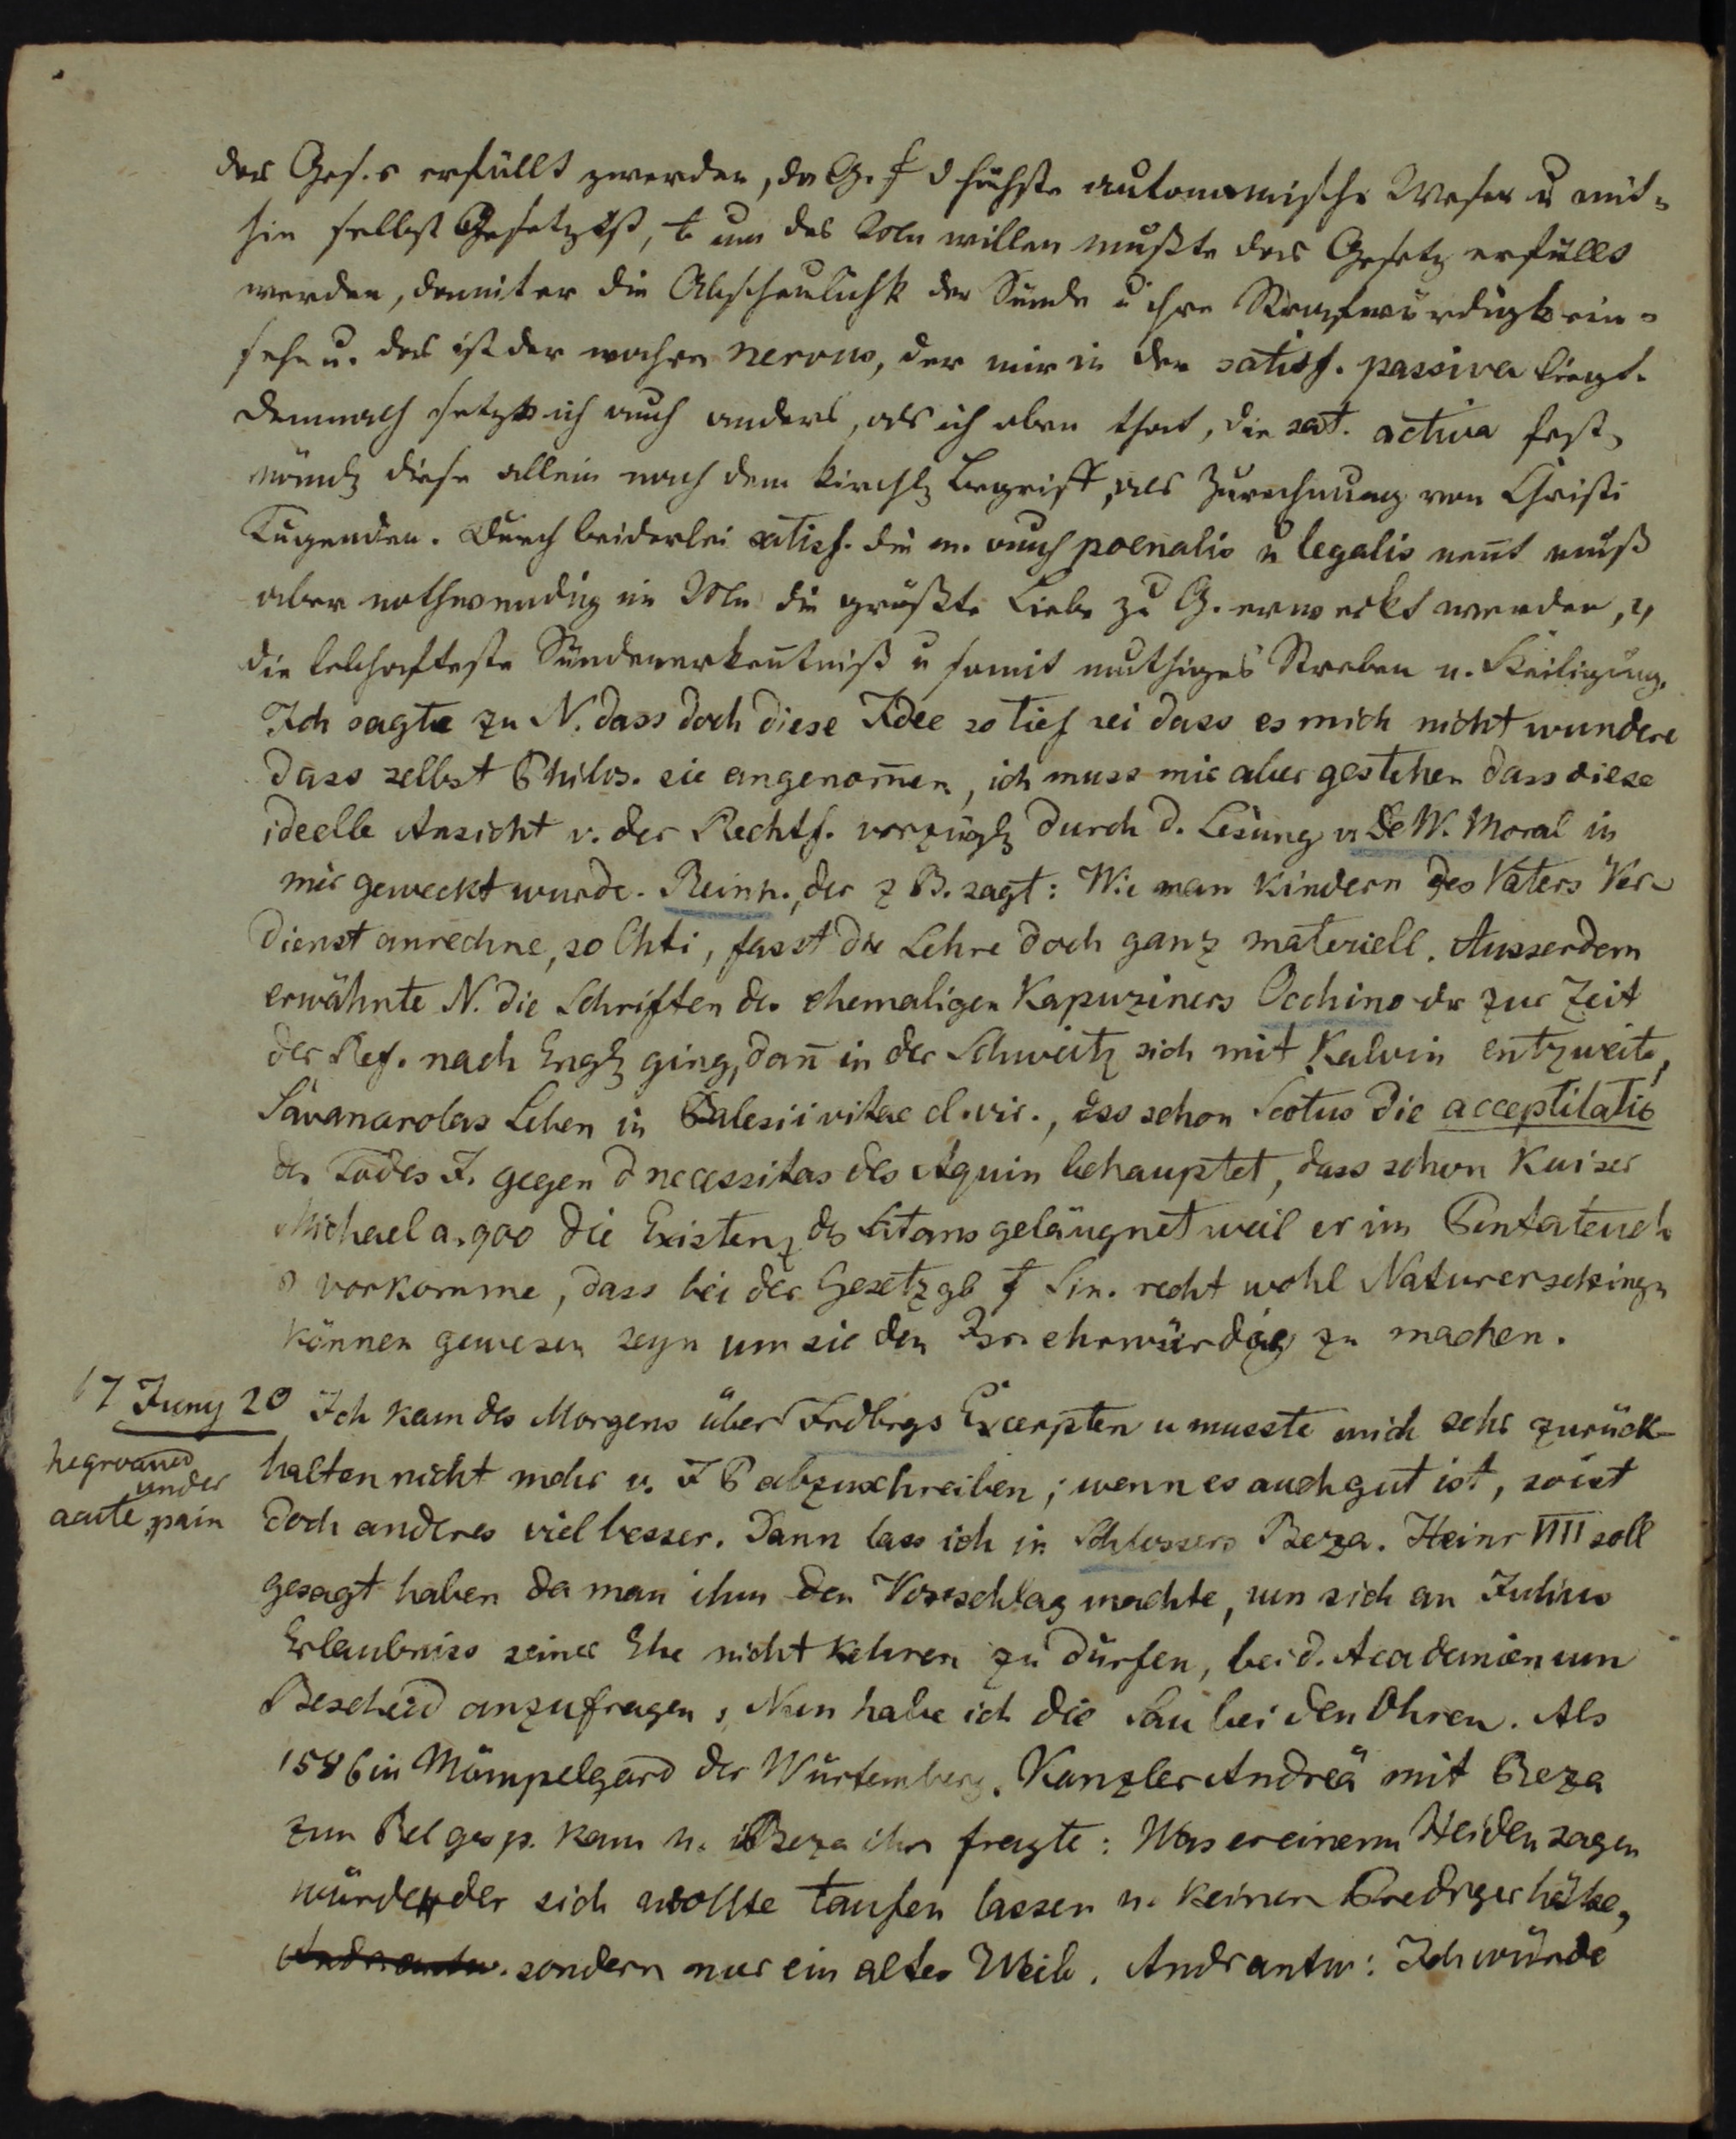 des Ges.s erfüllt zwerden, da G. ƒ d höchste autonomische Wesen u mit-
hin selbst Gesetz ist, um des Mn willen mußte das Gesetz erfüllt
werden, damit er die Abscheulichk der Sünde u ihre Strafwürdigk ein-
sehe u. das ist der wahre nervus, der mir in der satisf. passiva liegt.
Demnach setzte ich auch anders, als ich oben that, die sat. activa fest,
nämlich diese allein nach dem kirchl Begriff, als Zurechnung von Christi
Tugenden. Durch beiderlei satisf. die m. auch poenalis u legalis nent muß
aber nothwendig im Mn die größte Liebe zu G. erweckt werden,
die lebhafteste Sündenerkentniß u somit muthiges Streben n. Heiligung.
Ich sagte zu N. dass doch diese Idee so tief sei dass es mich nicht wundere
dass selbst Philos. sie angenomen, ich muss mir aber gestehen dass diese
ideelle Ansicht v. der Rechtf. vorzügl durch d. Lesung v. de W. Moral in
mir geweckt wurde. Reinh., der z B. sagt: Wie man Kindern des Vaters Ver-
dienst anrechne, so Chti, fasst die Lehre doch ganz materiell. Ausserdem
erwähnte N. die Schriften des ehemaligen Kapuziners Occhino der zur Zeit
der Ref. nach Engl ging, dan in der Schweitz sich mit Kalvin entzweite,
Savanarolas Leben in Balesii vitae cl. vir., dss schon Scotus die acceptilatio
des Todes J. gegen d necessitas des Aquin behauptet, dass schon Kaiser
Michael a. 900 die Existenz des Satans geläugnet weil er im Pentateuch
vorkomme, dass bei der Gesetzgb ƒ Sin. recht wohl Naturerschingn
können gewesen seyn um sie den Isr. ehrwürdig zu machen.
17 Juny 20 Ich kam des Morgens über Frdbrgs Excerpten u musste mich sehr zurück-
he groaned under acute pain
halten nicht mehr v. J P abzuschreiben; wenn es auch gut ist, so ist
doch anderes viel besser. Dann lass ich in Schlossers Beza. Heinr VIII soll
gesagt haben da man ihm den Vorschlag machte, um sich an Julius
Erlaubniss seiner Ehe nicht kehren zu dürfen, bei d. Academien um
Bescheid anzufragen, Nun habe ich die Sau bei den Ohren. Als
1586 in Mömpelgard der Würtemberg. Kanzler Andreä mit Beza
zum Rel gesp. kam u. Beza ihn fragte: Was er einem Heiden sagen
würde der sich wollte taufen lassen u. keinen Prediger hätte,
Andr antw. sondern nur ein altes Weib. Andr antw: Ich würde